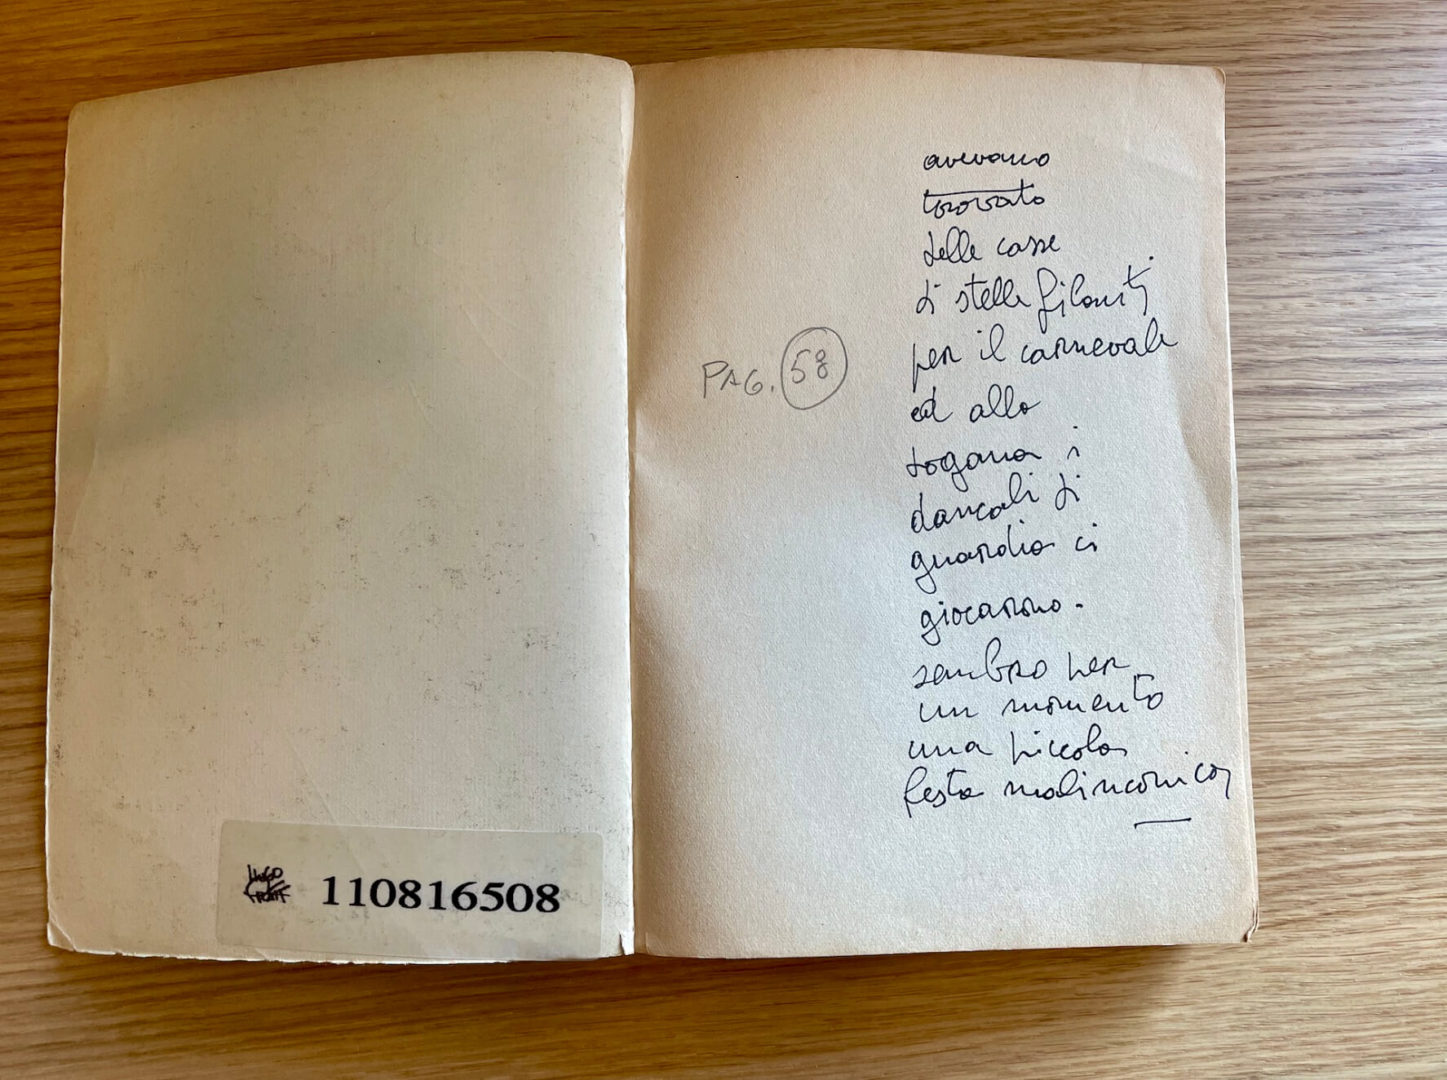 avevano
trovato
delle casse
di stelle filanti
per il carnevale
ed alla
dogana i
dancali di
guardia ci
giocarono.
sembrò per
un momento
una piccola
festa malinconica
PAG. 58
HUGO PRATT
110816508